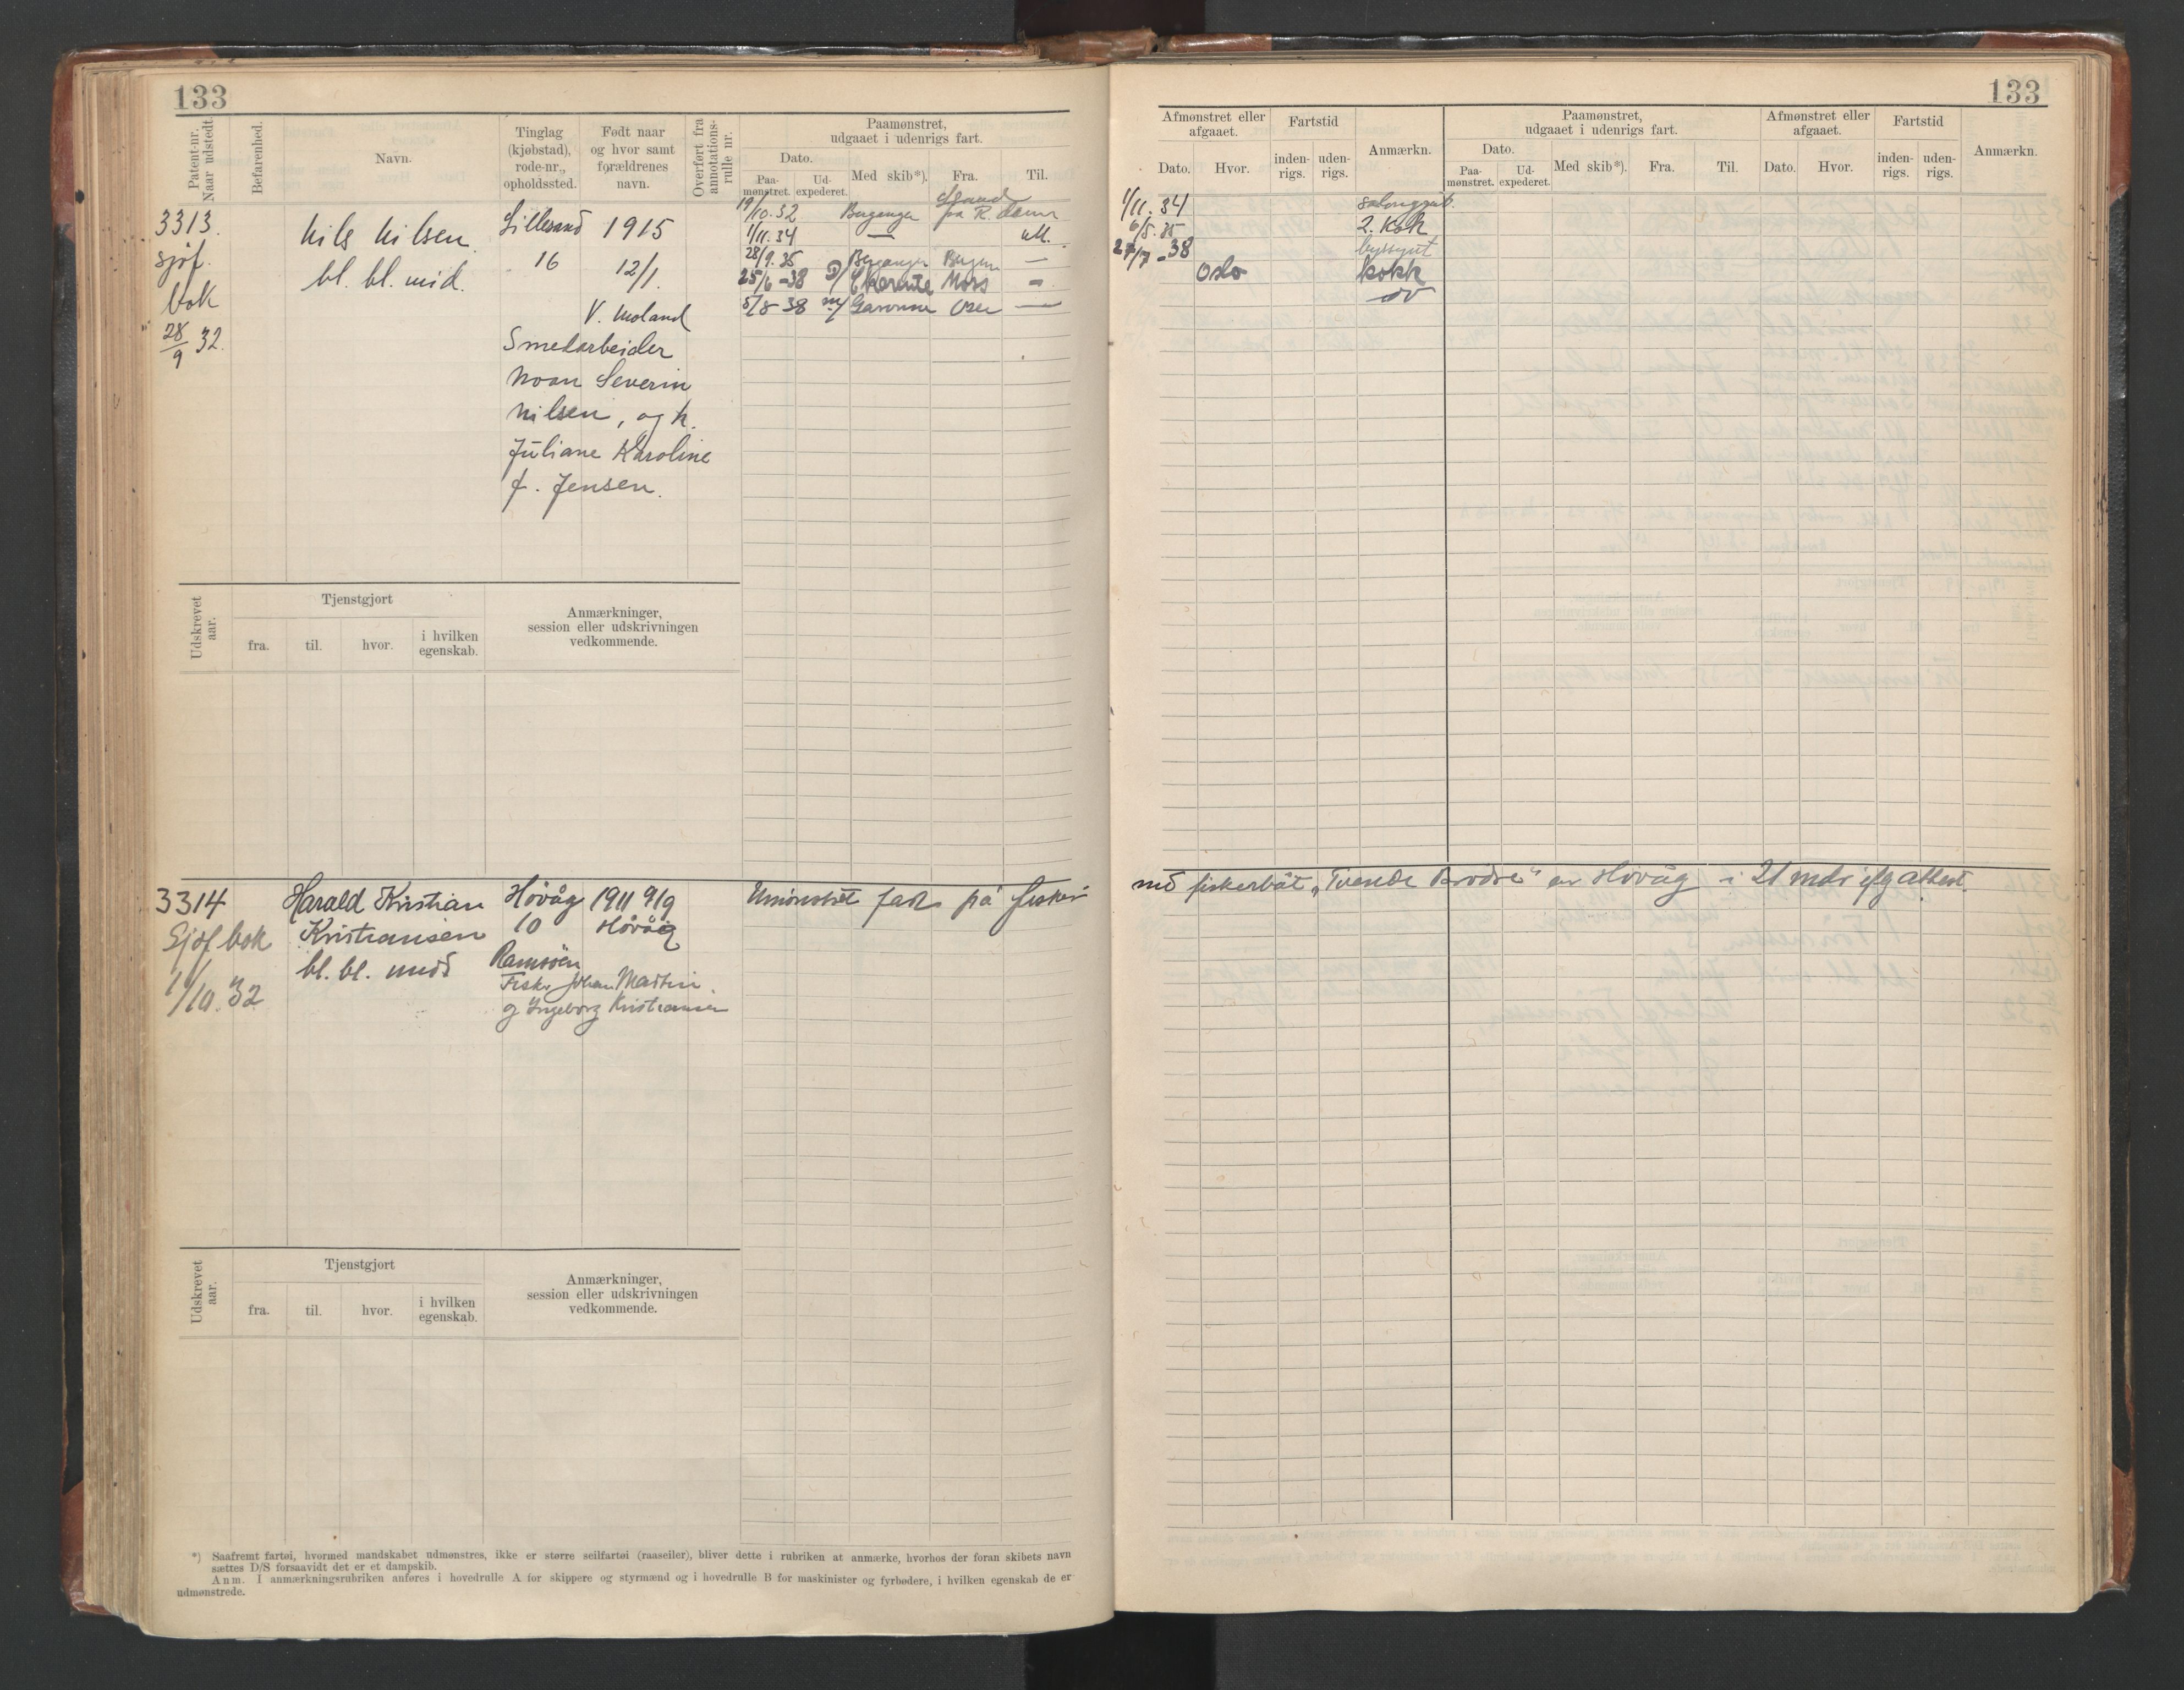 133
Patent-nr. Naar udstedt.
Befarenhed.
Navn.
Tinglag (kjøbstad), rode-nr., opholdssted.
Født naar og hvor samt forældrenes navn.
Overført fra annotations-rulle nr.
Paamønstret, udgaaet i udenrigs fart.
Dato.
Paa-mønstret.
Ud-expederet.
Med skib*).
Fra.
Til.
3313.
sjøf.
bok
28/9 32.
Nils Nilsen.
bl. bl. mid.
Lillesand 1915
16 12/1.
V. Moland
Smedarbeider
Noan Severin
Nilsen, og h.
Juliane Karoline
f. Jensen.
19/10.32 Beranger fra R.damm
1/11.34 — utl.
28/9.35 Beranger Bergen —
25/6-38 D/ Moss —
5/8-38 m/ Garonne Oslo —
Udskrevet aar.
Tjenstgjort
fra. til. hvor. i hvilken egenskab.
Anmærkninger, session eller udskrivningen vedkommende.
3314
Sjøf bok
1/10.32
Harald Kristian
Kristiansen
bl. bl. mid
Høvåg 1911 9/9
10 Høvåg
Ramsøen
Fisker Johan Martin
og Ingeborg Kristiansen
Umønstret fart på fiskeri
Udskrevet aar.
Tjenstgjort
fra. til. hvor. i hvilken egenskab.
Anmærkninger, session eller udskrivningen vedkommende.
*) Saafremt fartøi, hvormed mandskabet udmønstres, ikke er større seilfartøi (raaseiler), bliver dette i rubriken at anmærke, hvorhos der foran skibets navn
sættes D/S forsaavidt det er et dampskib.
Anm. I anmærkningsrubriken anføres i hovedrulle A for skippere og styrmænd og i hovedrulle B for maskinister og fyrbødere, i hvilken egenskab de er
udmønstrede.
133
Afmønstret eller afgaaet.
Dato. Hvor.
Fartstid
inden-rigs. uden-rigs.
Anmærkn.
Paamønstret, udgaaet i udenrigs fart.
Dato.
Paa-mønstret. Ud-expederet.
Med skib*). Fra. Til.
Afmønstret eller afgaaet.
Dato. Hvor.
Fartstid
inden-rigs. uden-rigs.
Anmærkn.
1/11.34 salonggut.
6/5.35 2. kok
27/7-38 byssgut
Oslo kokk
do
med fiskerbåt „Tvende Brødre" av Høvåg i 21 mdr ifg attest.